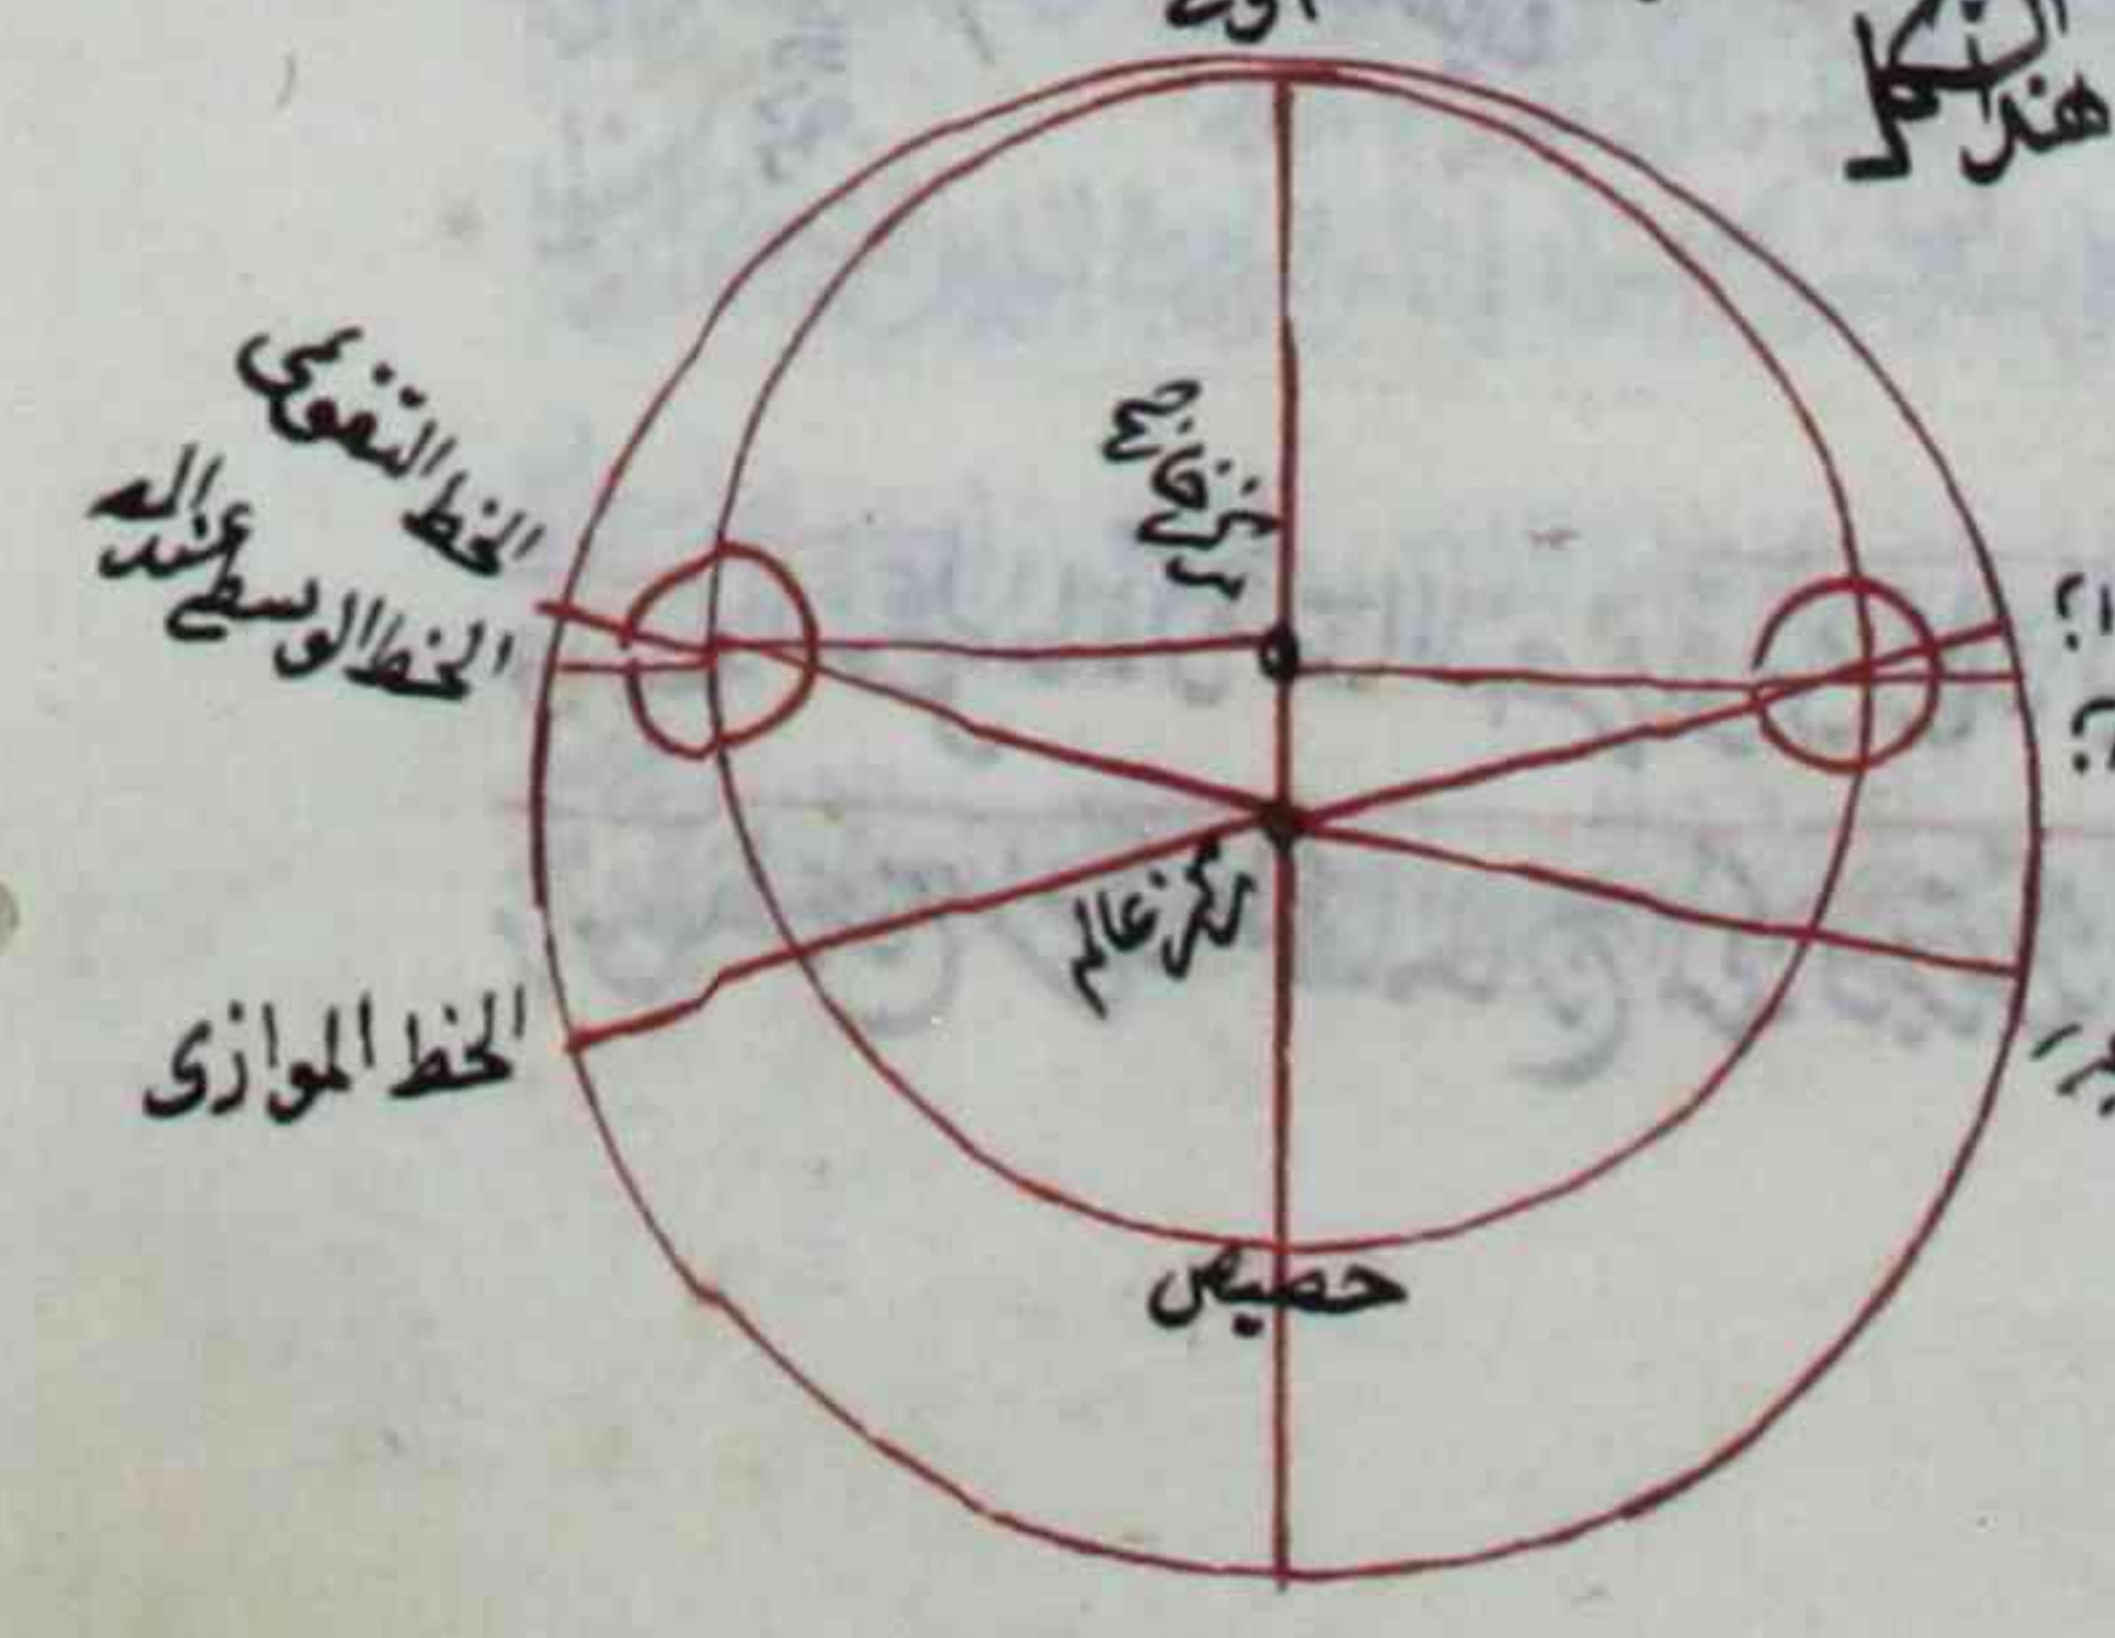 هذا الشكل
الخط التقويمى
الخط الوسطى عند
مركز خارج
مركز عالم
الخط الموازى
حضيض